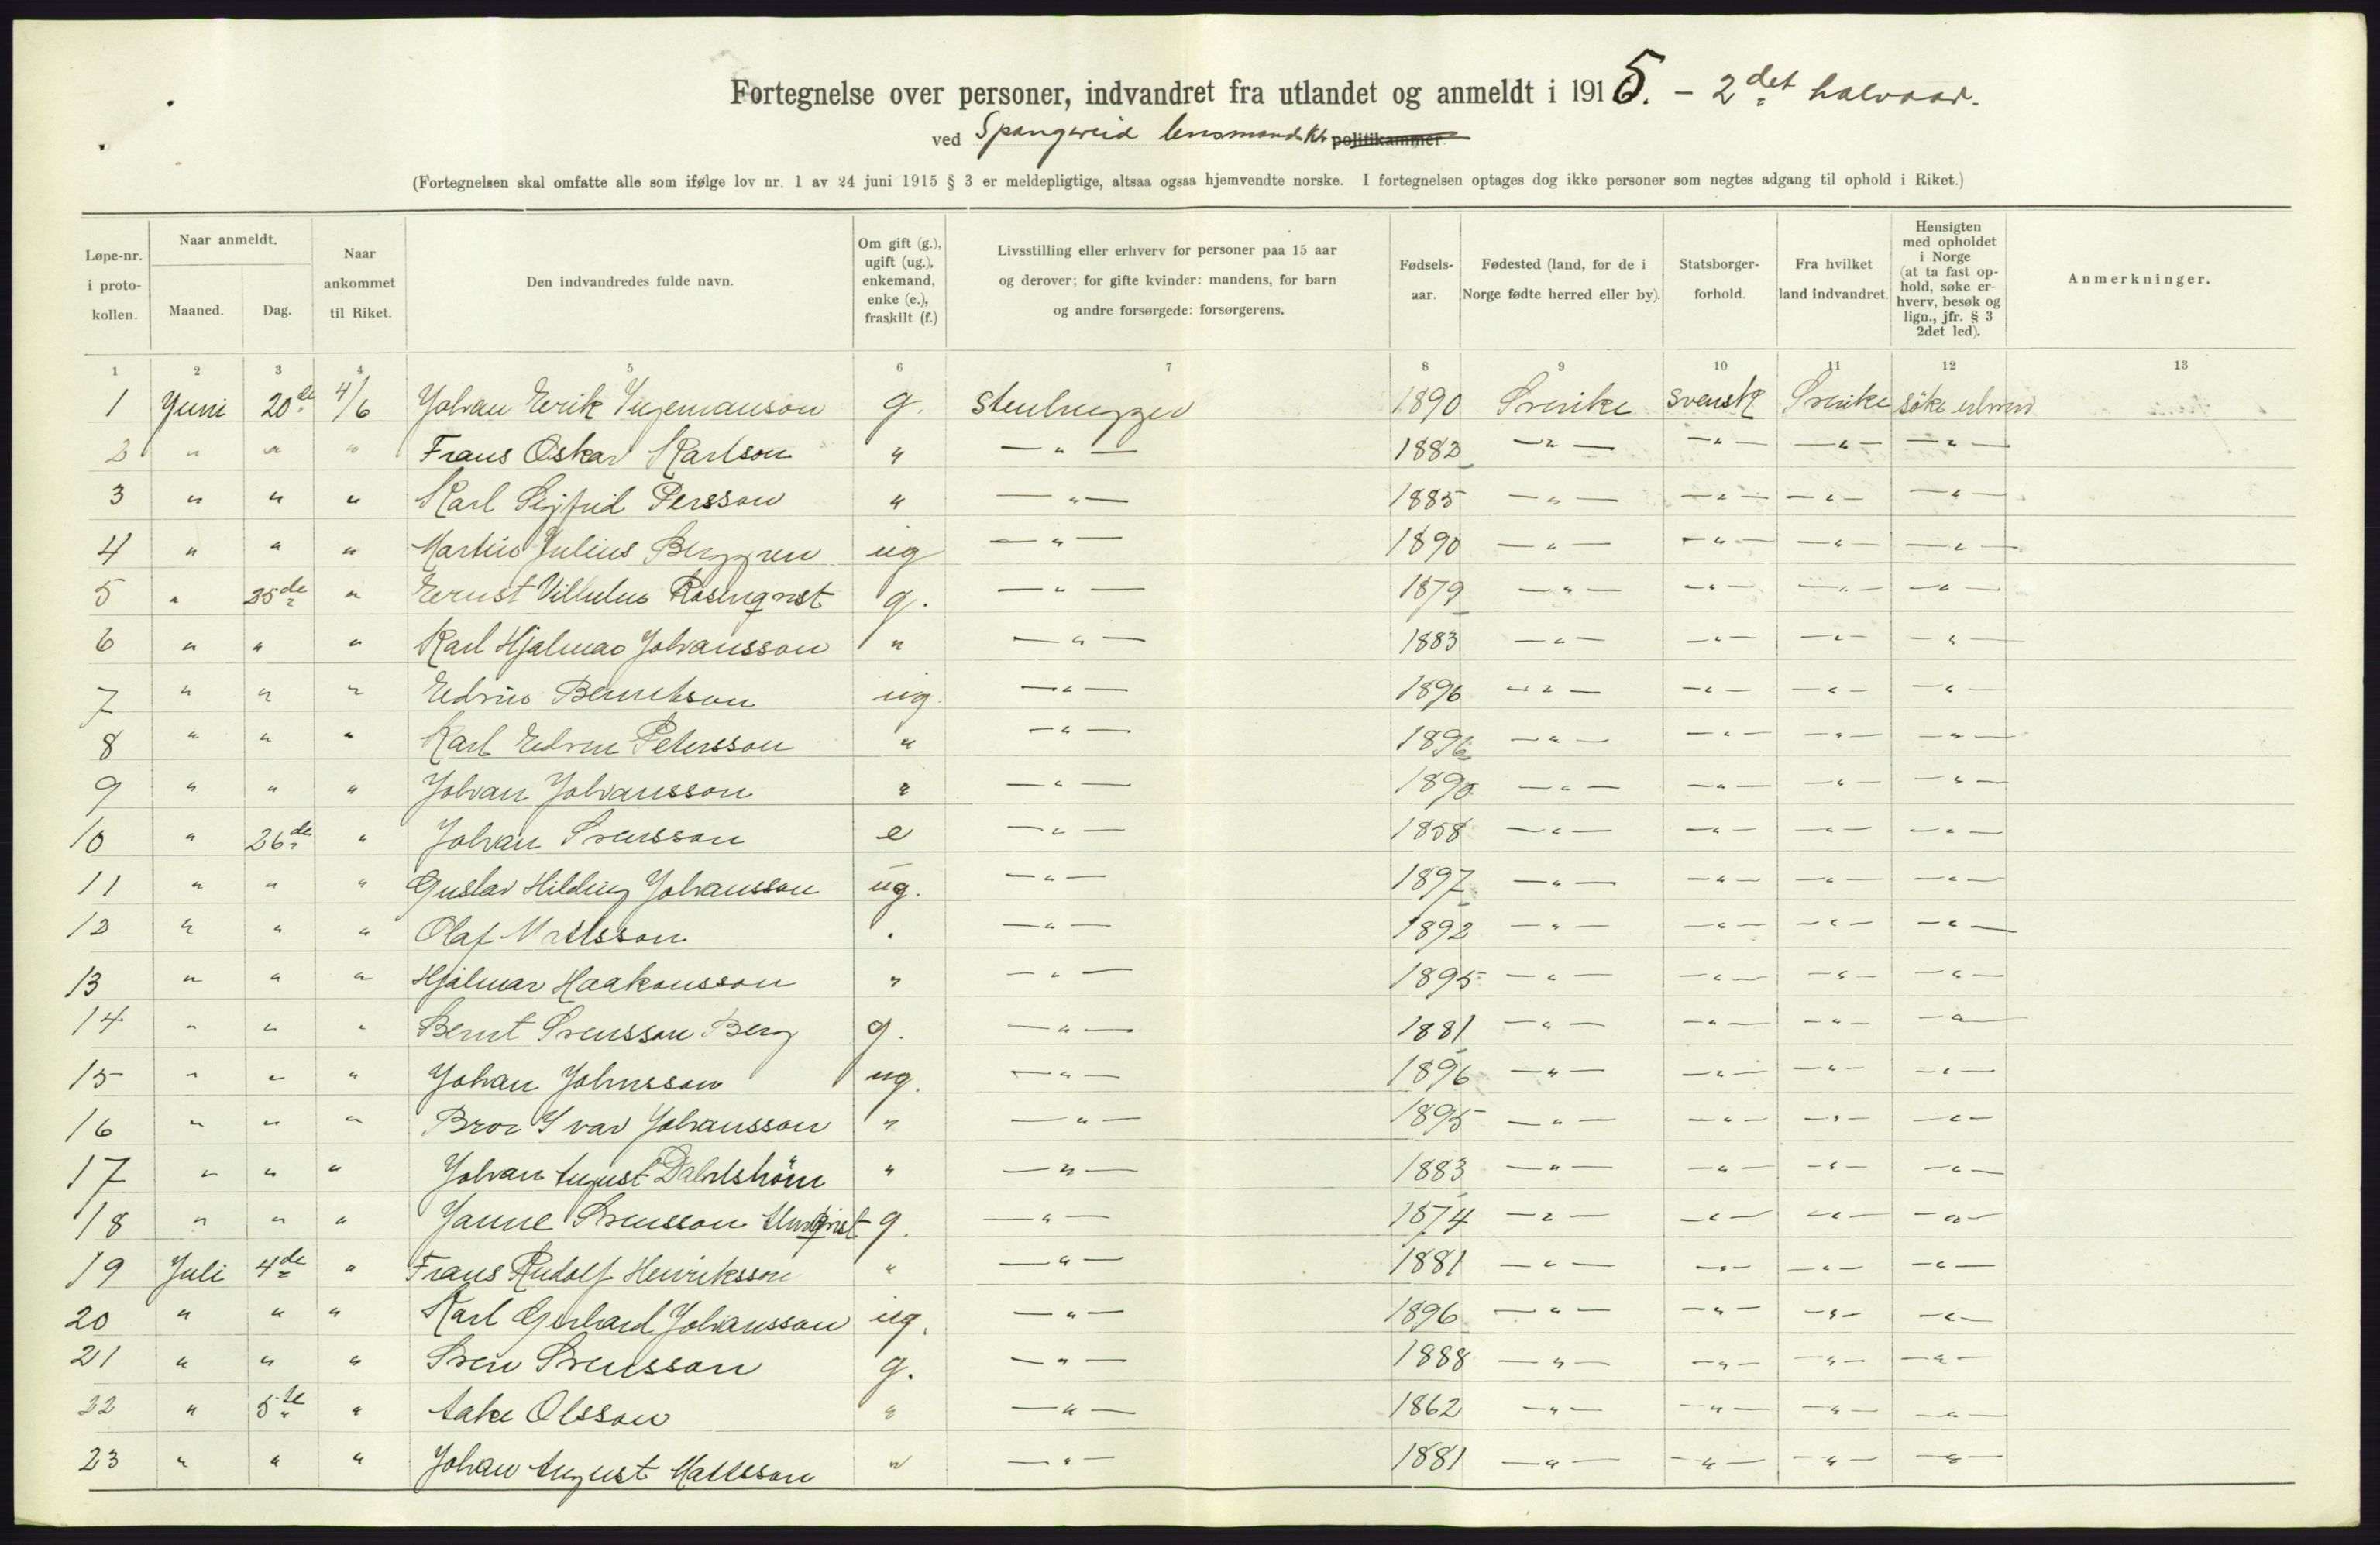 Fortegnelse over personer, indvandret fra utlandet og anmeldt i 1915. - 2det halvaar.
ved Spangereid lensmandskt. politikammer
(Fortegnelsen skal omfatte alle som ifølge lov nr. 1 av 24 juni 1915 § 3 er meldepligtige, altsaa ogsaa hjemvendte norske. I fortegnelsen optages dog ikke personer som negtes adgang til ophold i Riket.)
Løpe-nr. i proto-kollen. Naar anmeldt. Maaned. Dag. Naar ankommet til Riket. Den indvandredes fulde navn. Om gift (g.), ugift (ug.), enkemand, enke (e.), fraskilt (f.) Livsstilling eller erhverv for personer paa 15 aar og derover; for gifte kvinder: mandens, for barn og andre forsørgede: forsørgerens. Fødsels-aar. Fødested (land, for de i Norge fødte herred eller by). Statsborger-forhold. Fra hvilket land indvandret. Hensigten med opholdet i Norge (at ta fast op-hold, søke er-hverv, besøk og lign., jfr. § 3 2det led). Anmerkninger.
1 2 3 4 5 6 7 8 9 10 11 12 13
1 Juni 20de 4/6 Johan Erik Ingemanson g. Stenhugger 1890 Sverike svensk Sverike söke erhverv
2 " " " Frans Oskar Karlson " — " — 1882 — " — — " — — " — — " —
3 " " " Karl Sigfrid Persson " — " — 1885 — " — — " — — " — — " —
4 " " " Martin Julius Berggren ug — " — 1890 — " — — " — — " — — " —
5 " 25de " Ernst Vilhelm Rosenqvist g. — " — 1879 — " — — " — — " — — " —
6 " " " Karl Hjalmar Johansson " — " — 1883 — " — — " — — " — — " —
7 " " " Edvin Berntson ug. — " — 1896 — " — — " — — " — — " —
8 " " " Karl Edvin Petersson " — " — 1896 — " — — " — — " — — " —
9 " " " Johan Johansson " — " — 1890 — " — — " — — " — — " —
10 " 26de " Johan Svensson e — " — 1858 — " — — " — — " — — " —
11 " " " Gustav Hilding Johansson ug. — " — 1897 — " — — " — — " — — " —
12 " " " Olaf Mattsson " — " — 1892 — " — — " — — " — — " —
13 " " " Hjalmar Haakonsson " — " — 1895 — " — — " — — " — — " —
14 " " " Bernt Svensson Berg g. — " — 1881 — " — — " — — " — — " —
15 " " " Johan Johnsson ug. — " — 1896 — " — — " — — " — — " —
16 " " " Bror Ivar Johansson " — " — 1895 — " — — " — — " — — " —
17 " " " Johan August Dahlström " — " — 1883 — " — — " — — " — — " —
18 " " " Janne Svensson Almqvist g. — " — 1874 — " — — " — — " — — " —
19 Juli 4de " Frans Rudolf Henriksson " — " — 1881 — " — — " — — " — — " —
20 " " " Karl Gerhard Johansson ug. — " — 1896 — " — — " — — " — — " —
21 " " " Sven Svensson g. — " — 1888 — " — — " — — " — — " —
22 " 5te " Aake Olsson " — " — 1862 — " — — " — — " — — " —
23 " " " Johan August Mattsson " — " — 1881 — " — — " — — " — — " —